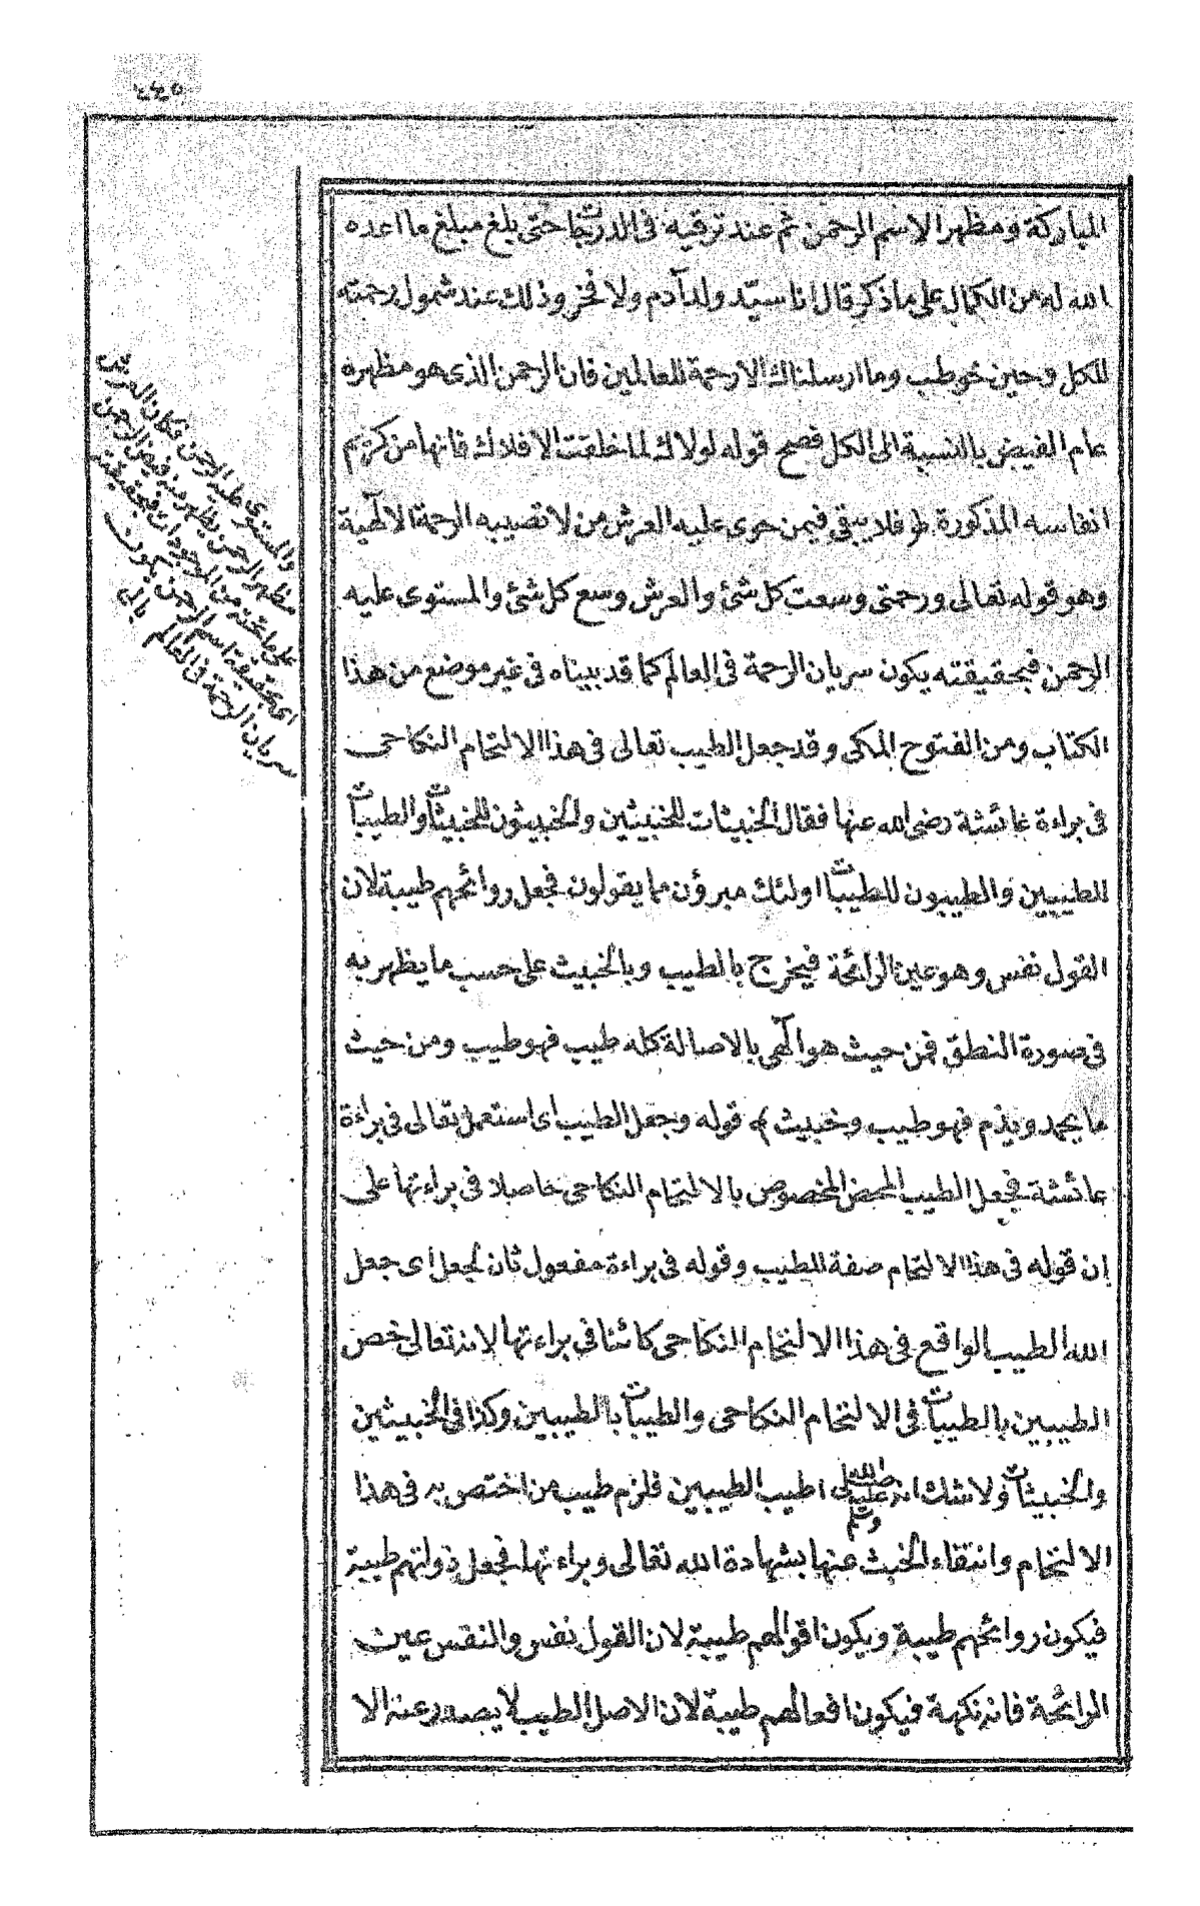 ٤٤٥
المباركة ومظهرا لاسم الرحمن ثم عند ترقيه فى الدرجات حتى بلغ مبلغ ما اعده
الله له من الكمال على ما ذكر قال انا سيّد ولد آدم ولا فخر وذلك عند شمول رحمته
للكل وحين خوطب وما ارسلناك الا رحمة للعالمين فان الرحمن الذى هو مظهره
عام الفيض بالنسبة الى الكل فصح قوله لولاك لما خلقت الافلاك فانها من كريم
انفاسه المذكورة فلا يبقى فيمن حوى عليه العرش من لا تصيبه الرحمة الالهية
وهو قوله تعالى ورحمتى وسعت كل شئ والعرش وسع كل شئ والمستوى عليه
الرحمن فبحقيقته يكون سريان الرحمة فى العالم كما قد بيناه فى غير موضع من هذا
الكتاب ومن الفتوح المكى وقد جعل الطيب تعالى فى هذا الالتحام النكاحى
فى براءة عائشة رضى الله عنها فقال الخبيثات للخبيثين والخبيثون للخبيثات والطيبات
للطيبين والطيبون للطيبات اولئك مبرؤن مما يقولون فجعل روائحهم طيبة لان
القول نفس وهو عين الرائحة فيخرج بالطيب وبالخبيث على حسب ما يظهر به
فى صورة النطق فمن حيث هو الٓهى بالاصالة كله طيب فهو طيب ومن حيث
ما يحمد ويذم فهو طيب وخبيث ) قوله وجعل الطيب اى استعمل تعالى فى براءة
عائشة فجعل الطيب المحض المخصوص بالالتحام النكاحى حاصلا فى براءتها على
ان قوله فى هذا الالتحام صفة للطيب وقوله فى براءة مفعول ثان لجعل اى جعل
الله الطيب الواقع فى هذا الالتحام النكاحى كائنا فى براءتها لانه تعالى خص
الطيبين بالطيبات فى الالتحام النكاحى والطيبات بالطيبين وكذا فى الخبيثين
والخبيثات ولا شك انه صلى الله عليه وسلم اطيب الطيبين فلزم طيب من اختص به فى هذا
الالتحام وانتفاء الخبث عنها بشهادة الله تعالى وبراءتها فجعل ذواتهم طيبة
فيكون روائحهم طيبة ويكون اقوالهم طيبة لان القول نفس والنفس عين
الرائحة فانه نكهة فيكون افعالهم طيبة لان الاصل الطيب لا يصدر عنه الا
والمستوى عليه الرحمن فكان العرش
مظهر الرحمن يظهر منه فيض الرحمن
على ما تحته من الموجودات فبحقيقته
اى بحقيقة اسم الرحمن يكون
سريان الرحمة فى العالم بالى